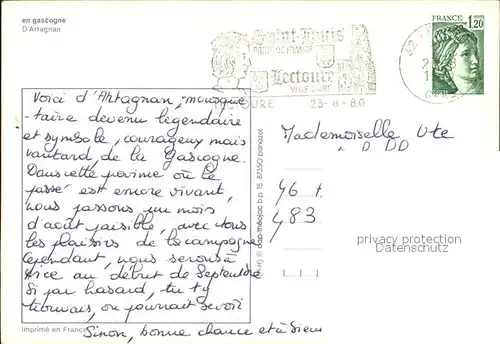 en gascogne
D'Artagnan
Saint Louis
PORTE DE FRANCE
Lectoure
VILLE D'ART
LECTOURE 23-8-80
FRANCE
1,20
Voici d'Artagnan, mousque-
taire devenu légendaire
et symbole, courageux mais
vantard, de la Gascogne.
Dans cette province où le
passé est encore vivant,
nous passons un mois
d'août paisible, avec tous
les plaisirs de la campagne
Cependant, nous serons à
Nice au début de Septembre
Si par hasard, tu t'y
trouvais, on pourrait se voir
Sinon, bonne chance et à bien
Mademoiselle Ute
46
483
privacy protection
Datenschutz
87350 panazol
Imprimé en France